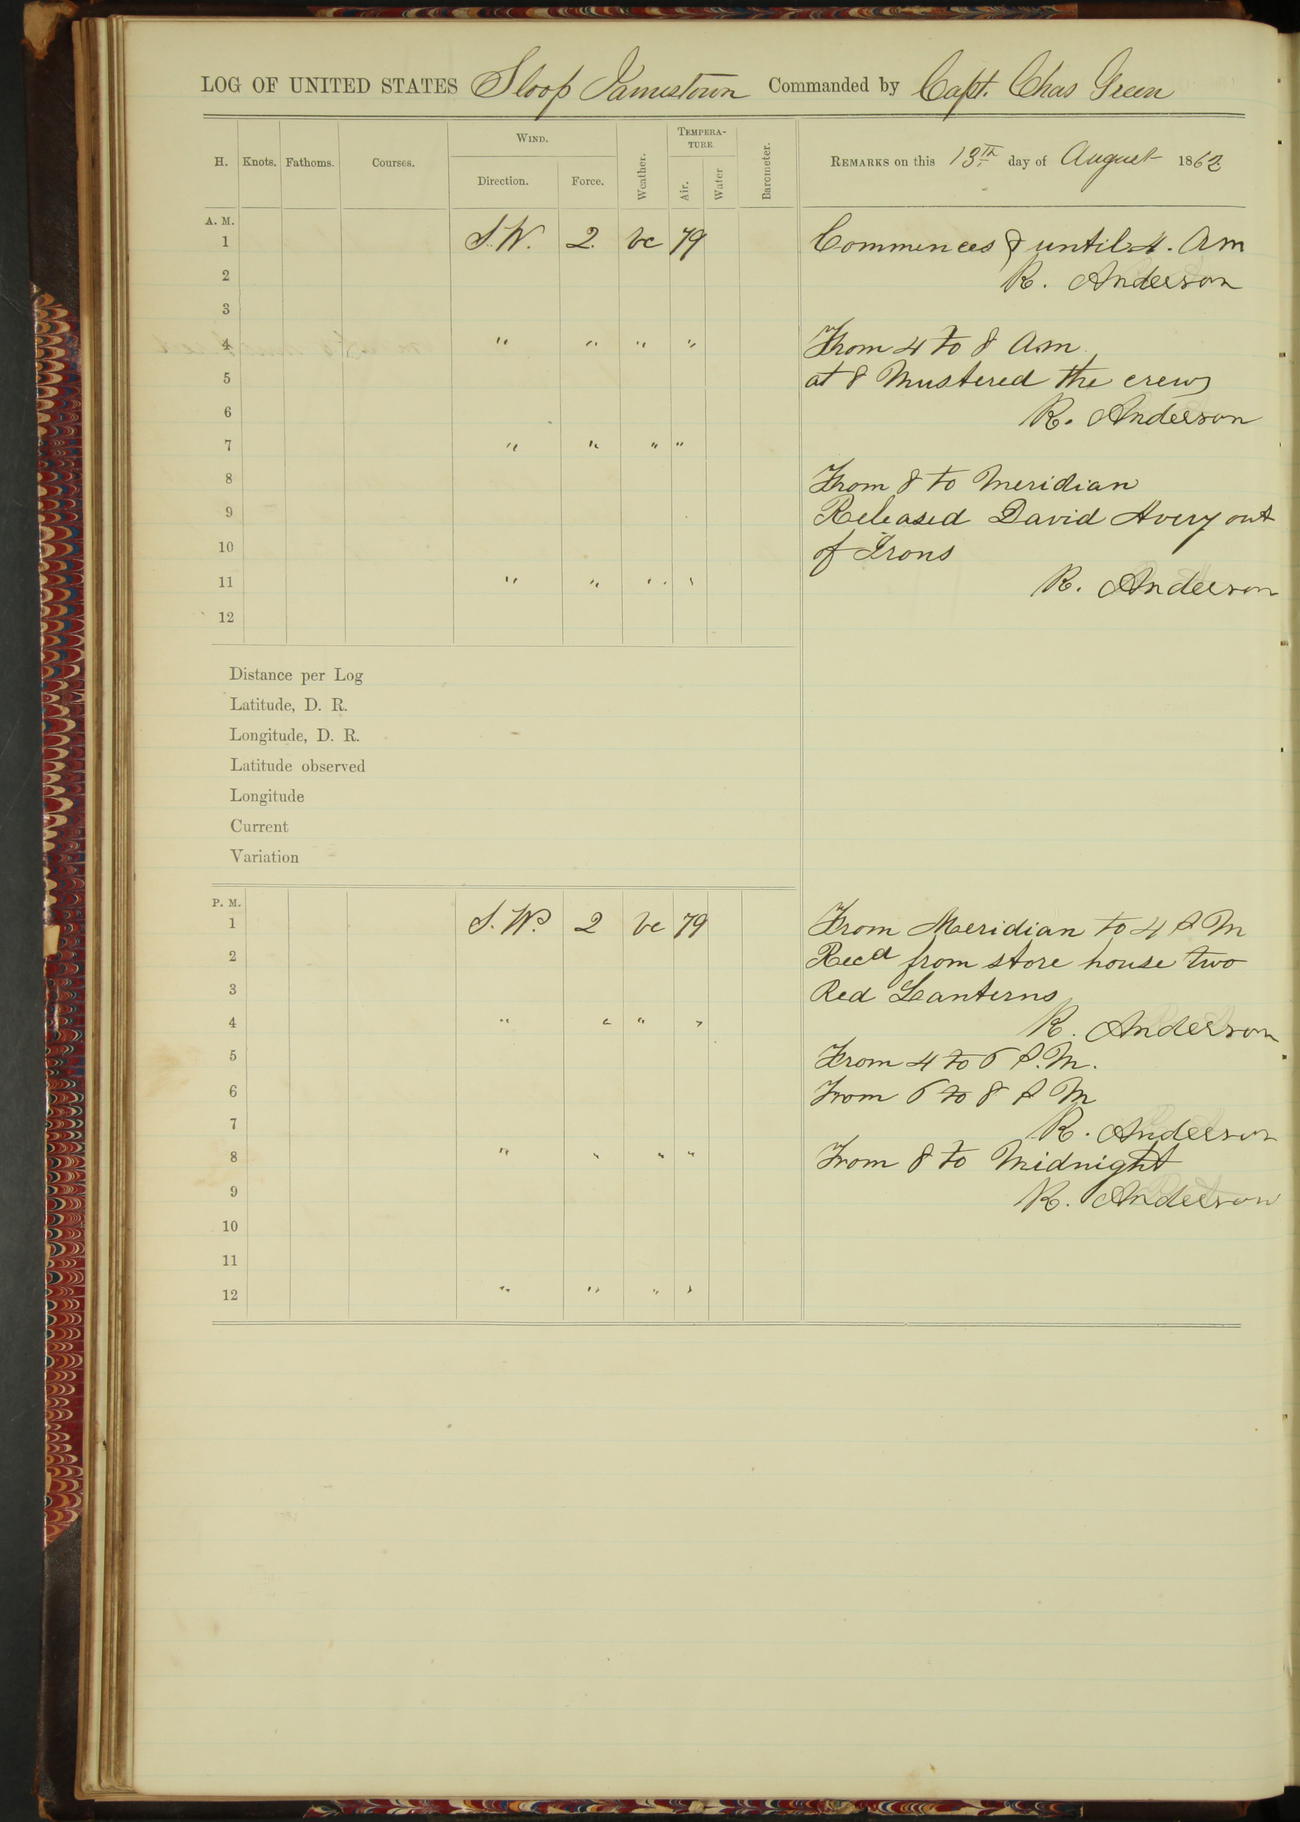 LOG OF UNITED STATES Sloop Jamestown Commanded by Capt. Chas Green
H. Knots. Fathoms. Courses. WIND. Direction. Force. Weather. TEMPERA-TURE Air. Water Barometer. REMARKS on this 13th day of August 1862
A. M.
1 S.W. 2. bc 79 Commences & until 4. Am
2 R. Anderson
3
4 " " " " From 4 to 8 Am
5 at 8 Mustered the crew
6 R. Anderson
7 " " " "
8 From 8 to Meridian
9 Released David Avery out
10 of Irons
11 " " " " R. Anderson
12
Distance per Log
Latitude, D. R.
Longitude, D. R.
Latitude observed
Longitude
Current
Variation
P. M.
1 S.W. 2 bc 79 From Meridian to 4 P M
2 Recd from store house two
3 Red Lanterns
4 " " " " R. Anderson
5 From 4 to 6 P.M.
6 From 6 to 8 P M
7 R. Anderson
8 " " " " From 8 to Midnight
9 R. Anderson
10
11
12 " " " "